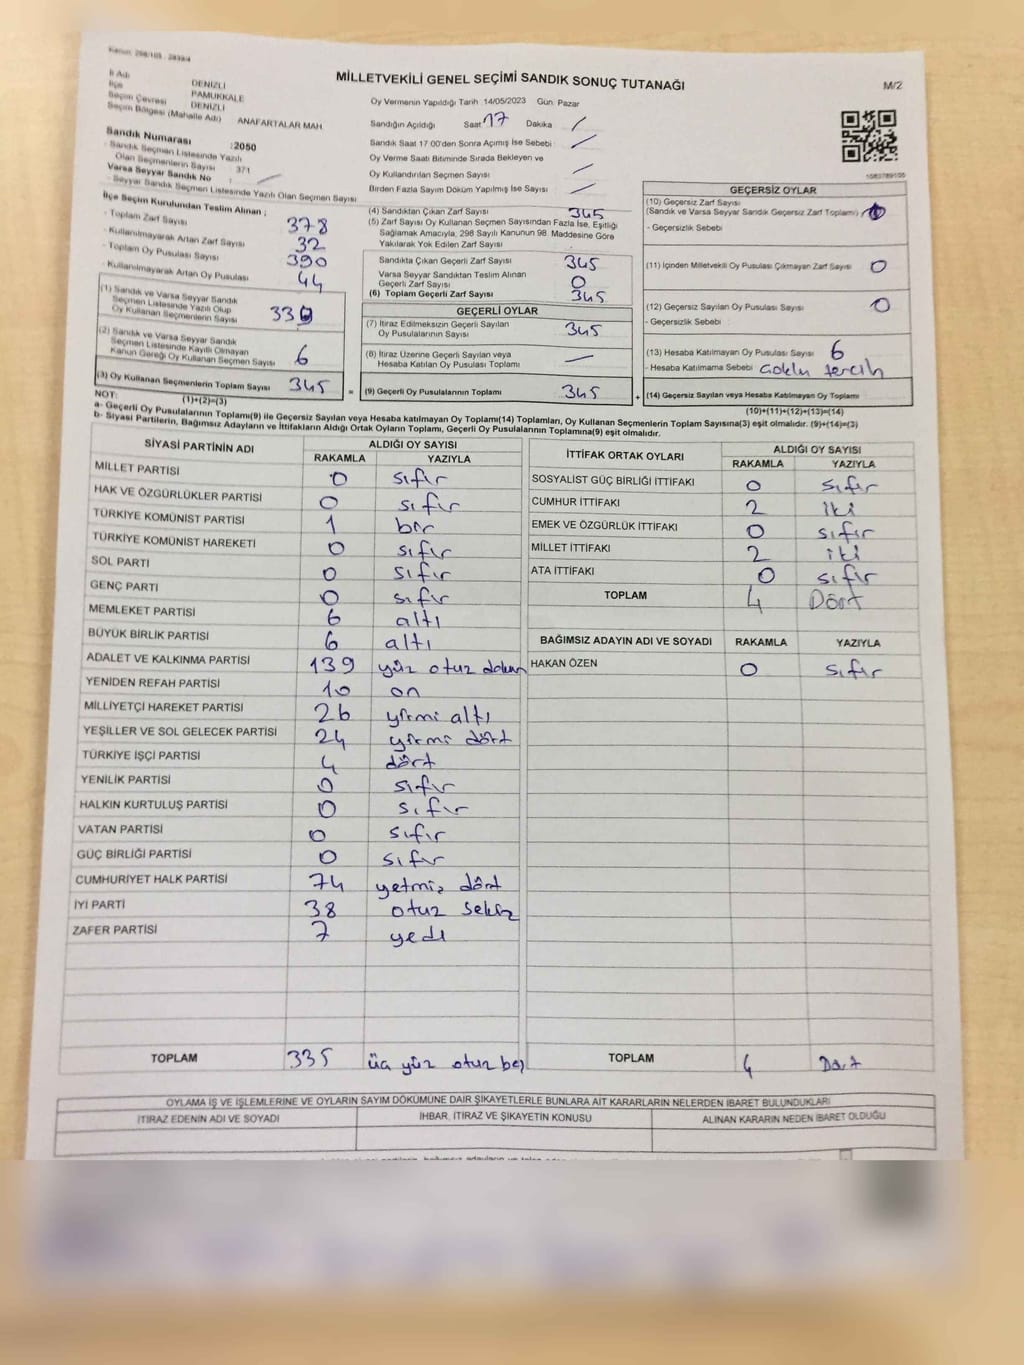 Kanun: 298/105 - 2839/4
MİLLETVEKİLİ GENEL SEÇİMİ SANDIK SONUÇ TUTANAĞI
M/2
İl Adı DENİZLİ
İlçe PAMUKKALE
Seçim Çevresi DENİZLİ
Seçim Bölgesi (Mahalle Adı) ANAFARTALAR MAH.
Oy Vermenin Yapıldığı Tarih 14/05/2023 Gün Pazar
Sandığın Açıldığı Saat 17 Dakika /
Sandık Saat 17:00'den Sonra Açımış İse Sebebi : /
Oy Verme Saati Bitiminde Sırada Bekleyen ve
Oy Kullandırılan Seçmen Sayısı /
Birden Fazla Sayım Döküm Yapılmış İse Sayısı /
Sandık Numarası :2050
- Sandık Seçmen Listesinde Yazılı
Olan Seçmenlerin Sayısı 371
Varsa Seyyar Sandık No :
- Seyyar Sandık Seçmen Listesinde Yazılı Olan Seçmen Sayısı
İlçe Seçim Kurulundan Teslim Alınan ;
- Toplam Zarf Sayısı 378
- Kullanılmayarak Artan Zarf Sayısı 32
- Toplam Oy Pusulası Sayısı 390
- Kullanılmayarak Artan Oy Pusulası 44
(1) Sandık ve Varsa Seyyar Sandık
Seçmen Listesinde Yazılı Olup
Oy Kullanan Seçmenlerin Sayısı 339
(2) Sandık ve Varsa Seyyar Sandık
Seçmen Listesinde Kayıtlı Olmayan
Kanun Gereği Oy Kullanan Seçmen Sayısı 6
(3) Oy Kullanan Seçmenlerin Toplam Sayısı 345 =
(1)+(2)=(3)
(4) Sandıktan Çıkan Zarf Sayısı 345
(5) Zarf Sayısı Oy Kullanan Seçmen Sayısından Fazla İse, Eşitliği
Sağlamak Amacıyla, 298 Sayılı Kanunun 98. Maddesine Göre
Yakılarak Yok Edilen Zarf Sayısı
Sandıkta Çıkan Geçerli Zarf Sayısı 345
Varsa Seyyar Sandıktan Teslim Alınan
Geçerli Zarf Sayısı 0
(6) Toplam Geçerli Zarf Sayısı 345
GEÇERLİ OYLAR
(7) İtiraz Edilmeksizin Geçerli Sayılan
Oy Pusulalarının Sayısı 345
(8) İtiraz Üzerine Geçerli Sayılan veya
Hesaba Katılan Oy Pusulası Toplamı —
(9) Geçerli Oy Pusulalarının Toplamı 345 +
1083789105
GEÇERSİZ OYLAR
(10) Geçersiz Zarf Sayısı
(Sandık ve Varsa Seyyar Sandık Geçersiz Zarf Toplamı)
- Geçersizlik Sebebi
(11) İçinden Milletvekili Oy Pusulası Çıkmayan Zarf Sayısı 0
(12) Geçersiz Sayılan Oy Pusulası Sayısı 0
- Geçersizlik Sebebi
(13) Hesaba Katılmayan Oy Pusulası Sayısı 6
- Hesaba Katılmama Sebebi Çoklu tercih
(14) Geçersiz Sayılan veya Hesaba Katılmayan Oy Toplamı
(10)+(11)+(12)+(13)=(14)
NOT:
a- Geçerli Oy Pusulalarının Toplamı(9) ile Geçersiz Sayılan veya Hesaba katılmayan Oy Toplamı(14) Toplamları, Oy Kullanan Seçmenlerin Toplam Sayısına(3) eşit olmalıdır. (9)+(14)=(3)
b- Siyasi Partilerin, Bağımsız Adayların ve İttifakların Aldığı Ortak Oyların Toplamı, Geçerli Oy Pusulalarının Toplamına(9) eşit olmalıdır.
SİYASİ PARTİNİN ADI ALDIĞI OY SAYISI
RAKAMLA YAZIYLA
MİLLET PARTİSİ 0 sıfır
HAK VE ÖZGÜRLÜKLER PARTİSİ 0 sıfır
TÜRKİYE KOMÜNİST PARTİSİ 1 bir
TÜRKİYE KOMÜNİST HAREKETİ 0 sıfır
SOL PARTİ 0 sıfır
GENÇ PARTİ 0 sıfır
MEMLEKET PARTİSİ 6 altı
BÜYÜK BİRLİK PARTİSİ 6 altı
ADALET VE KALKINMA PARTİSİ 139 yüz otuz dokuz
YENİDEN REFAH PARTİSİ 10 on
MİLLİYETÇİ HAREKET PARTİSİ 26 yirmi altı
YEŞİLLER VE SOL GELECEK PARTİSİ 24 yirmi dört
TÜRKİYE İŞÇİ PARTİSİ 4 dört
YENİLİK PARTİSİ 0 sıfır
HALKIN KURTULUŞ PARTİSİ 0 sıfır
VATAN PARTİSİ 0 sıfır
GÜÇ BİRLİĞİ PARTİSİ 0 sıfır
CUMHURİYET HALK PARTİSİ 74 yetmiş dört
İYİ PARTİ 38 otuz sekiz
ZAFER PARTİSİ 7 yedi
TOPLAM 335 üç yüz otuz beş
İTTİFAK ORTAK OYLARI ALDIĞI OY SAYISI
RAKAMLA YAZIYLA
SOSYALİST GÜÇ BİRLİĞİ İTTİFAKI 0 sıfır
CUMHUR İTTİFAKI 2 iki
EMEK VE ÖZGÜRLÜK İTTİFAKI 0 sıfır
MİLLET İTTİFAKI 2 iki
ATA İTTİFAKI 0 sıfır
TOPLAM 4 Dört
BAĞIMSIZ ADAYIN ADI VE SOYADI RAKAMLA YAZIYLA
HAKAN ÖZEN 0 sıfır
TOPLAM 4 Dört
OYLAMA İŞ VE İŞLEMLERİNE VE OYLARIN SAYIM DÖKÜMÜNE DAİR ŞİKAYETLERLE BUNLARA AİT KARARLARIN NELERDEN İBARET BULUNDUKLARI
İTİRAZ EDENİN ADI VE SOYADI İHBAR, İTİRAZ VE ŞİKAYETİN KONUSU ALINAN KARARIN NEDEN İBARET OLDUĞU